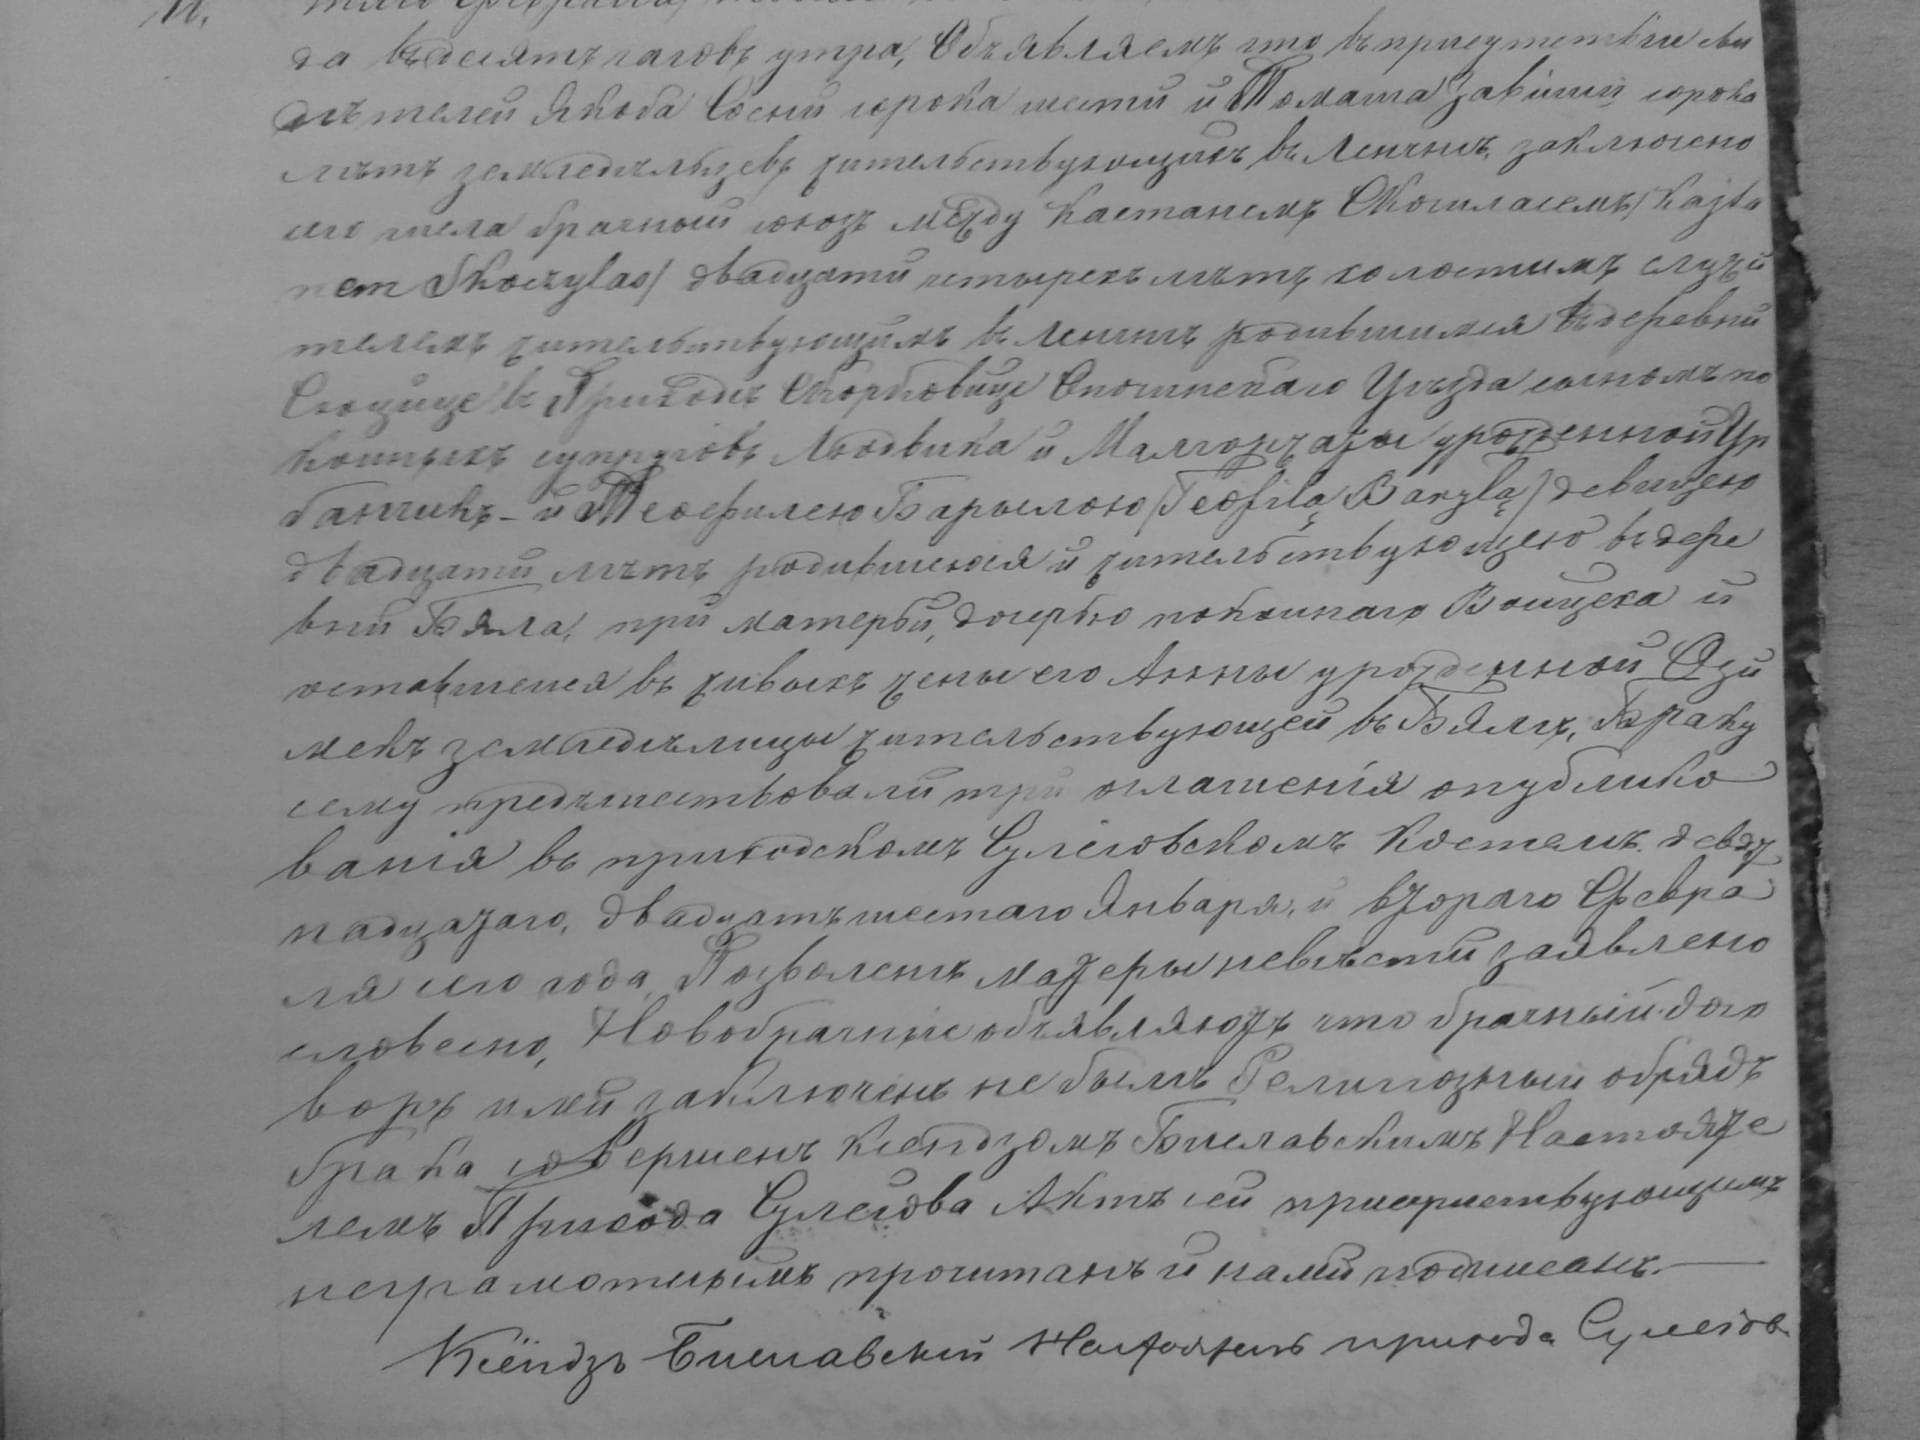 11.
Февраля
да въ десять часовъ утра, Объявляемъ что въ присутствіи сви
дѣтелей Якоба Сосни сорока шести и Томаша сорока
лѣтъ земледѣльцевъ жительствующихъ въ Ленчнѣ, заключено
сего числа брачный союзъ между Каетанемъ Скочиласемъ /Kajeta
nem Skoczylas/ двадцати четырехъ лѣтъ холостымъ служи
телемъ жительствующимъ въ Ленчнѣ родившимся въ деревни
въ Приходѣ Скорковице Опочинскаго Уѣзда сыномъ по
койныхъ супруговъ Людвика и Малгоржаты урожденной Ур
банчикъ - и Теофилею Барылою /Teofilą Baryłą/ девицею
двадцати лѣтъ родившеюся и жительствующею въ дере
вни Бяла, при матерьи, дочерью покойнаго Войцеха и
оставшейся въ живыхъ жены его Анны урожденной Ози
мекъ земледѣлицы жительствующей въ Бялѣ, Браку
сему предшествовали три оглашенія опублико
ванія въ приходскомъ Сулеіовскомъ Костелѣ девят
надцатаго, двадцать шестаго Января, и втораго Февра
ля сего года, Позволенѣ матеры невѣсти заявлено
словесно, Новобрачніе объявляютъ что брачный дого
воръ ими заключенъ не былъ Религіозный обрядъ
брака совершенъ Ксендзомъ Биелавскимъ Настояте
лемъ Прихода Сулеіова Актъ сей присутствующимъ
неграмотнымъ прочитанъ и нами подписанъ. —
Ксёндзъ Биелавскій Настоятель прихода Сулеіов.